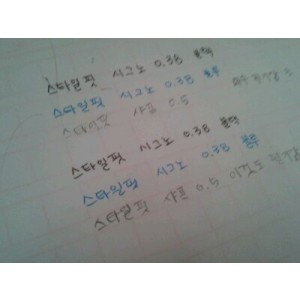 스타일핏 시그노 0.38 블랙
스타일핏 시그노 0.38 블루
스타일핏 샤프 0.5
스타일핏 시그노 0.38 블랙
스타일핏 시그노 0.38 블루
스타일핏 샤프 0.5 이것도